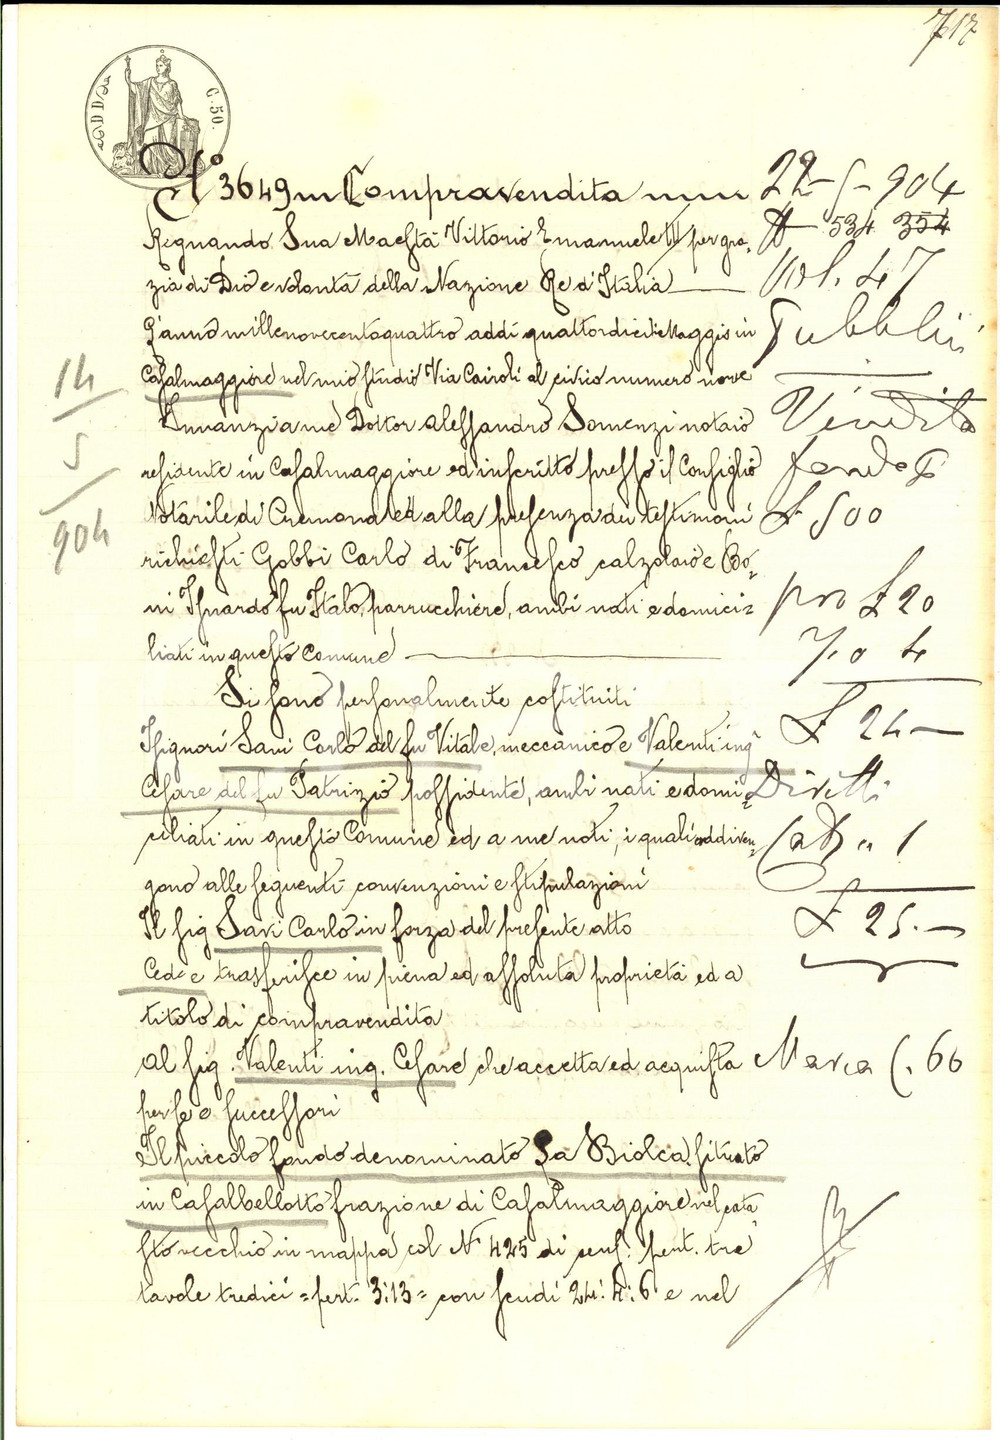 717
C. 50.
N° 3649 Compravendita
Regnando Sua Maestà Vittorio Emanuele III per gra-
zia di Dio e volontà della Nazione Re d'Italia
L'anno millenovecentoquattro addì quattordici Maggio in
Casalmaggiore nel mio studio Via Cairoli al civico numero nove
Innanzi a me Dottor Alessandro Somenzi notaio
residente in Casalmaggiore ed inscritto presso il Consiglio
Notarile di Cremona ed alla presenza dei testimoni
richiesti Gobbi Carlo di Francesco calzolaio e Bo-
ni Isnardo fu Italo, parrucchiere, ambi nati e domici-
liati in questo Comune
Si sono personalmente costituiti
I signori Savi Carlo del fu Vitale, meccanico e Valenti ing.
Cesare del fu Patrizio possidente, ambi nati e domi-
ciliati in questo Comune ed a me noti, i quali addiven-
gono alle seguenti convenzioni e stipulazioni
Il sig Savi Carlo in forza del presente atto
Cede e trasferisce in piena ed assoluta proprietà ed a
titolo di compravendita
al sig. Valenti ing. Cesare che accetta ed acquista
per se e successori
Il piccolo fondo denominato La Biolca, situato
in Casalbellotto frazione di Casalmaggiore nel cata
sto vecchio in mappa col N° 425 di cens. pert. tre
tavole tredici = pert. 3:13 = con scudi 24: 4: 6 e nel
14
5
904
22-5-904
N 534 354
Vol. 47
Pubblici
Vendita
fondo
£ 500
pro £ 20
4
£ 24-
Diritti
1
£ 25.-
Marca C. 60